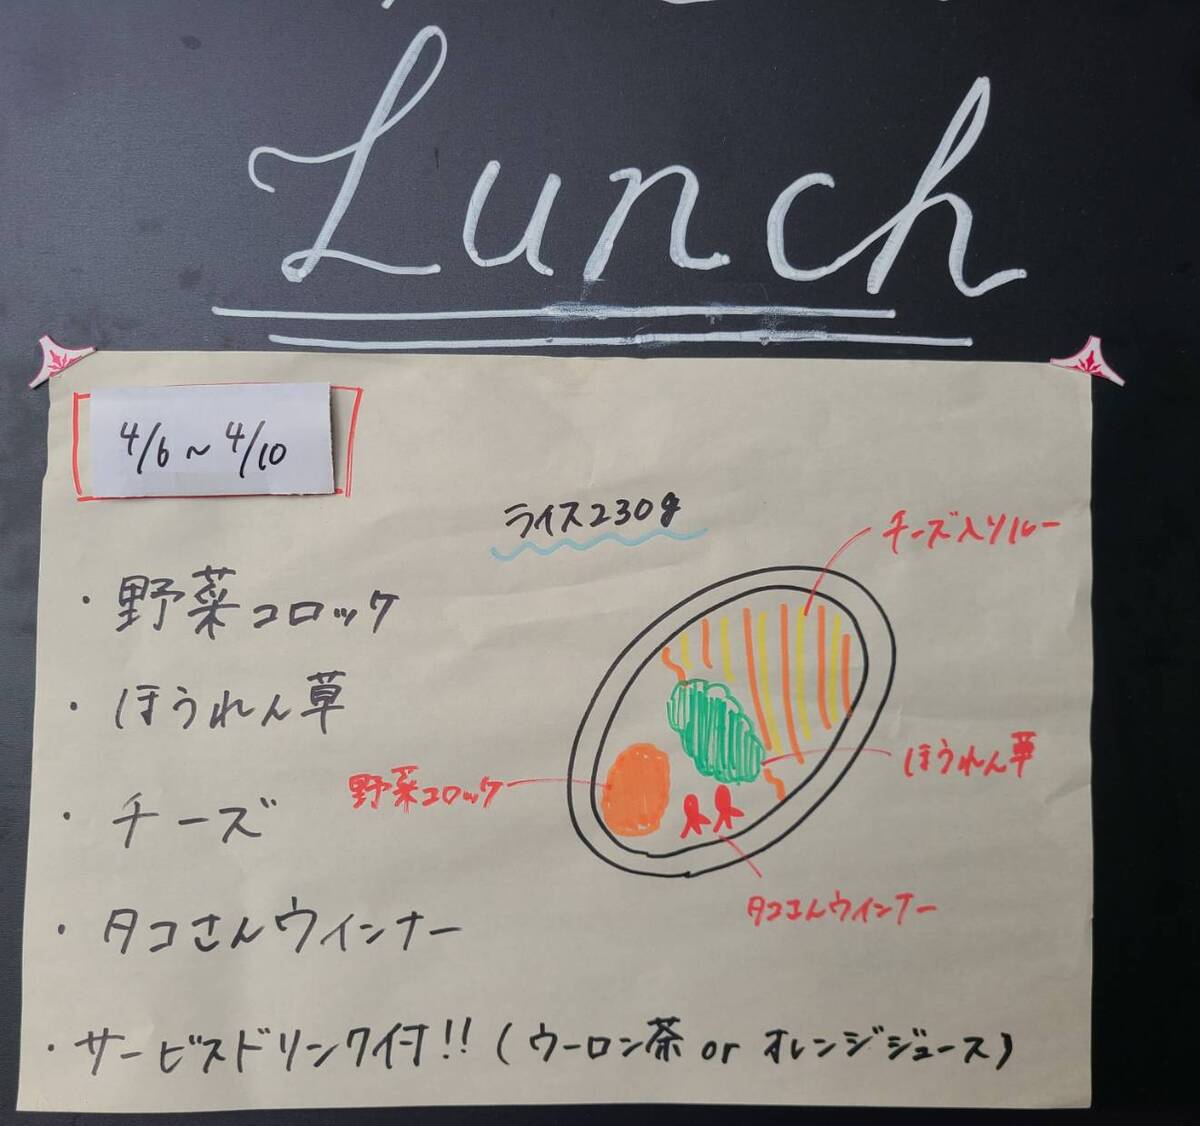 Lunch
4/6～4/10
ライス230g
チーズ入りルー
・野菜コロッケ
・ほうれん草
ほうれん草
野菜コロッケ
・チーズ
タコさんウィンナー
・タコさんウィンナー
・サービスドリンク付!!(ウーロン茶 or オレンジジュース)